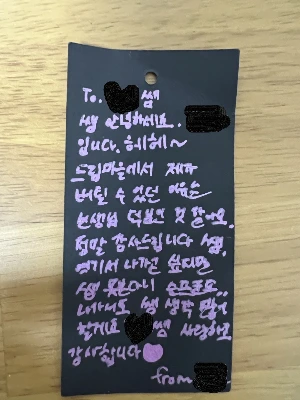 To. 쌤
쌤 안녕하세요.
입니다. 헤헤~
드림마을에서 제가
버틸 수 있던 이유는
선생님 덕분인 것 같아요.
정말 감사드립니다 쌤.
여기서 나가고 싶지만
쌤 못본다니 슬프로요..
나가서도 쌤 생각 많이
할게요 쌤 사랑하고
감사합니다
from